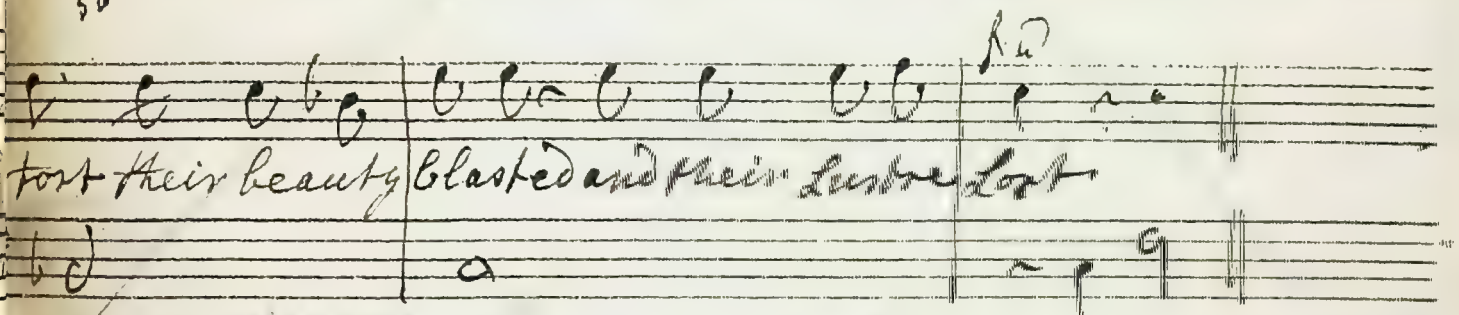 tost their beauty blasted and their Lustre Lost